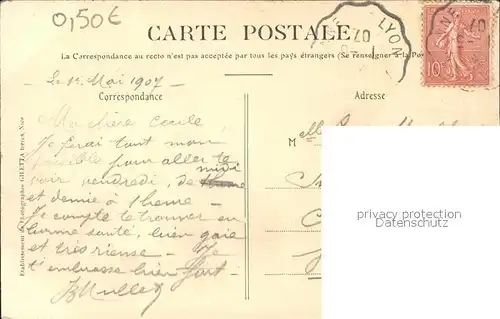 0,50€
CARTE POSTALE
LYON
07
La Correspondance au recto n'est pas acceptée par tous les pays étrangers (Se renseigner à la Po
10
Le 1er Mai 1907
Correspondance
Adresse
Ma chère Cécile
Je ferai tout mon
possible pour aller te
voir vendredi, de midi
et demie à 1 heure -
Je compte te trouver en
bonne santé, bien gaie
et très rieuse - Je
t'embrasse bien fort -
BMuller
M elle
privacy protection
watermark
Etablissement de Photographie GILETTA frères, Nice